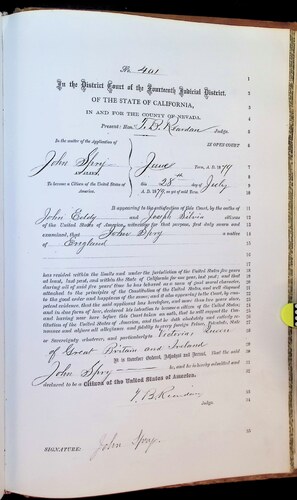 No. 461
In the District Court of the Fourteenth Judicial District,
OF THE STATE OF CALIFORNIA,
IN AND FOR THE COUNTY OF NEVADA.
Present: Hon. T. B. Reardan Judge.
In the matter of the Application of
John Spry
To become a Citizen of the United States of America.
IN OPEN COURT
June Term, A. D. 1879
this 28th day of July
A. D. 1879, as yet of said Term
It appearing to the satisfaction of this Court, by the oaths of
John Eddy and Joseph citizens
of the United States of America, witnesses for that purpose, first duly sworn and
examined, that John Spry a native
of England
has resided within the limits and under the jurisdiction of the United States five years
at least, last past, and within the State of California for one year, last past; and that
during all of said five years' time he has behaved as a man of good moral character,
attached to the principles of the Constitution of the United States, and well disposed
to the good order and happiness of the same; and it also appearing to the Court, by competent
evidence, that the said applicant has heretofore, and more than two years since,
and in due form of law, declared his intention to become a citizen of the United States;
and having now here before this Court taken an oath, that he will support the Constitution
of the United States of America, and that he doth absolutely and entirely renounce
and abjure all allegiance and fidelity to every foreign Prince, Potentate, State
or Sovereignty whatever, and particularly to Victoria Queen
of Great Britain and Ireland
It is therefore Ordered, Adjudged and Decreed, That the said
John Spry be, and he is hereby admitted and
declared to be a Citizen of the United States of America.
T. B. Reardan
Judge.
SIGNATURE: John Spry.